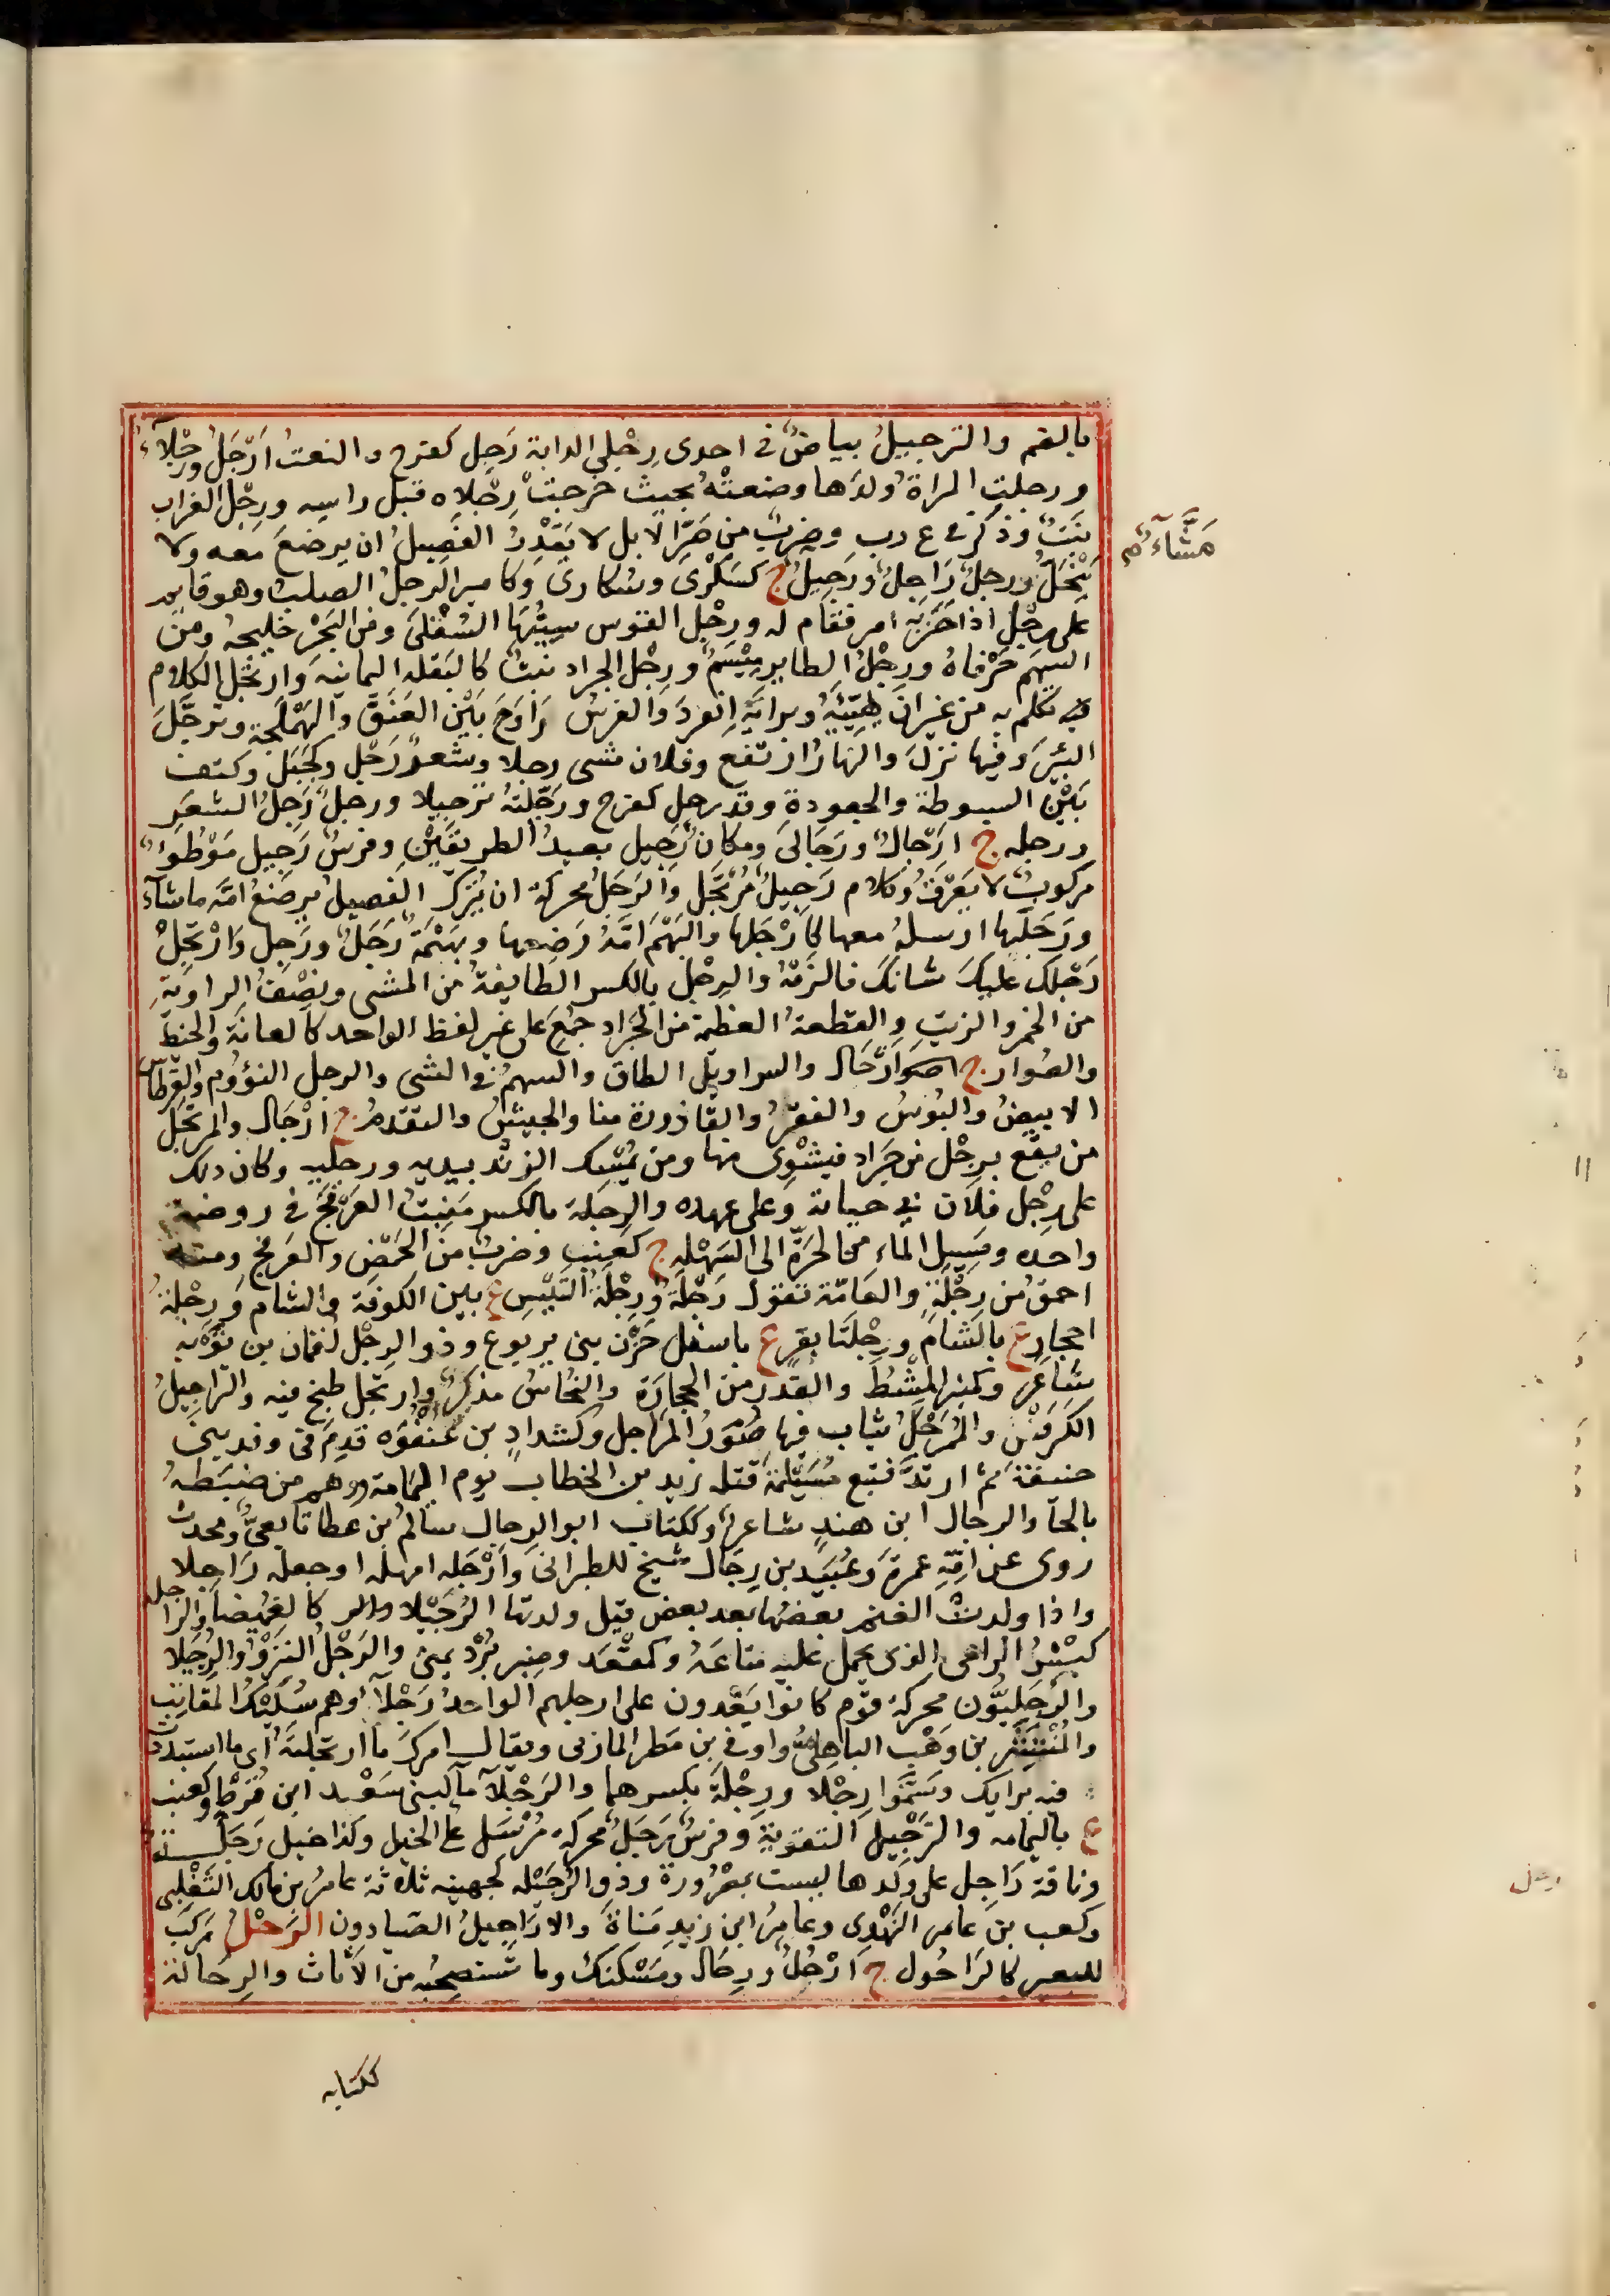 بالضم والترجيلُ بياضٌ في احدى رِجْلي الدابة رَجِل كفرح والنعتُ اَرْجَلُ ورَجْلآءُ
ورجلتِ المراةُ ولدَها وضعتْهُ بحيث خرجتْ رِجْلاه قبل راسِه ورِجْلُ الغراب
نَبْتٌ وذكر في غ ر ب وضربٌ من صَرِّ الابل لا يَقْدِرُ الفصيلُ ان يرضعَ معه ولا
يَنْحَلُّ ورجلٌ رَاجِلٌ ورَجِيلٌ مَشَّآءٌ ج كسَكْرَى وسُكارى وكامير الرجلُ الصلبُ وهو قايم
على رِجْلٍ اذا حَزَبَه امر فقام له ورِجْل القوس سِيَتُهَا السُفْلَى ومن البَحْرِ خليجُه ومن
السهم حَرْفاهُ ورِجْلُ الطاير مِيْسَمٌ ورِجْل الجراد نبتٌ كالبقله اليمانيه وارتجَل الكلام
تكلم به من غير ان يُهَيِّئَهُ وبرايه انْفردَ والفرسُ رَاوَحَ بَيْن العَنَقِ والهَمْلَجَة وترجَّلَ
البئرَ وفيها نزلَ والنهارُ ارتفع وفلان مشى رجلا وشعرٌ رَجْلٌ وكجَبَل وكتف
بَيْنَ السبوطة والجعودةِ وقد رجل كفرح ورَجَّلتُهُ ترجيلا ورجلٌ رَجِلُ الشعَرِ
ورجله ج ارْجالٌ ورَجَالَى ومكان رَجِيل بعيدُ الطريقَيْنِ وفرسٌ رَجِيل مَوْطُوءٌ
مركوبٌ لا يَعْرَقُ وكلام رَجِيلٌ مُرْتَجَل والرَجَلُ محركةً ان يُتْرَكَ الفصيلُ يرضعُ امَّه ما شآءَ
ورَجَلَها ارسلهُ معها كاَرْجَلَها والبَهْمُ امَّهُ رَضِعها وبَهْمَةٌ رَجَلٌ ورَجِل وارْتَجِلْ
رَجْلك عليكَ شانكَ فالزَمْهُ والرِجْل بالكسر الطايفةُ من المشى ونِصْفُ الراويَةِ
من الخمر والزيتِ والقطعةُ العظيمة من الجَرَادِ جَمْعٌ على غير لفظ الواحد كالعانَة والخيط
والصُوار ج ارْجَال والسراويل الطاق والسهمُ في الشى والرجل النؤوم والقِرطاس
الابيضُ والبُوسُ والفقرُ والقاذورة منا والجيشُ والتقدمُ ج ارْجَال والمرتَجِل
من يقَع برِجْل من جَرَادٍ فيشْوِى منها ومن يُمْسِك الزندَ بيديه ورجليه وكان ذلك
على رِجْل فلان في حياته وعلى عهده والرِجْلة بالكسر مَنْبِتُ العَرْفَجِ في روضة
واحده ومَسِيل الماءِ من الحَرَّةِ الى السَهْلِه ج كعِنَبِ وضربٌ من الحَمْضِ والعَرفج ومنه
احمق من رِجْلَةٍ والعامّة تقول رَجْلَة ورِجْلَةُ التَيْسِ ع بين الكوفة والشام ورِجْلةُ
احجارٍ ع بالشام ورِجْلَتَا بقرٍ ع باسفل حَزْن بنى يربوع وذو الرِجْل لُقمان بن تَوْبه
شاعر وكمِنْبرالمشْطُ والقدر من الحجارَة والنُحَاسُ مذكرٌ وارتجل طبخ فيه والتراجيلُ
الكَرَفْسُ والمُمَرْجَلُ ثياب فيها صُوَرُ المراجل وكشدادٍ بن عُنفُوَه قدِم في وفد بنى
حنيفة ثم ارتدَّ فتبع مُسَيْلمَة قتله زيد بن الخطاب يوم اليمَامة ووهم من ضبطهُ
بالحآ والرجال ابن هندٍ شاعرٌ وككتاب ابو الرِجال سالمُ بن عطا تابعىٌّ ومحدث
روى عن امِّهِ عمرةَ وعُبَيْد بن رِجَال شيخ للطبرانى وَأَرْجَله امهله او جعله رَاجلا
واذا ولدتْ الغنم بعضُها بعد بعض قيل ولدتها الرُجَيْلا كالغُمَيضا والراجله
كبْشُ الراعى الذى يحمل عليه متاعَهُ وكمقْعَد ومِنْبر بُرْد يمنى والرَجْلُ النَزْوُ والرُجَيْلا
والرَجَلِيّون محركةً قوم كانوا يَعْدون على ارجلهم الواحدُ رَجَلِىٌّ وهم سُلَيْكُ المقانِبِ
والمُنْتَشِر بن وَهْب الباهِلىُّ واوفى بن مَطرالمازنى ويقال امرك ما ارتجلتَهُ اى ما استبددت
فيه برايك وسَمَّوا رِجْلا ورِجْلَةَ بكسرهما والرَجْلآ مآ لبنى سَعْيد ابن قُرْطٍ وكعِنبٍ
ع باليمامه والتَرْجِيل التقويةِ وفرسٌ رَجَلٌ محركةً مُرْسَل على الخيل وكذا خيل رَجَلٌ
وناقة رَاجِل على ولدها ليست بمصْرُورة وذو الرُجَيْله لجهينه ثلاثة عامرُ بن مالك التَغْلبى
وكعب بن عامر النَهْدِى وعامِرُ ابن زيدِ مَناةَ والاراجِيلُ الصيادون الرَحْلُ مركَبٌ
للبعير كالرَاحُول ج ارْحُلٌ ورِحَال ومَسْكنكَ وما تستصحبُه من الأثاث والرِحَالة
ككتابه
مَشَّآءٌم
رجل